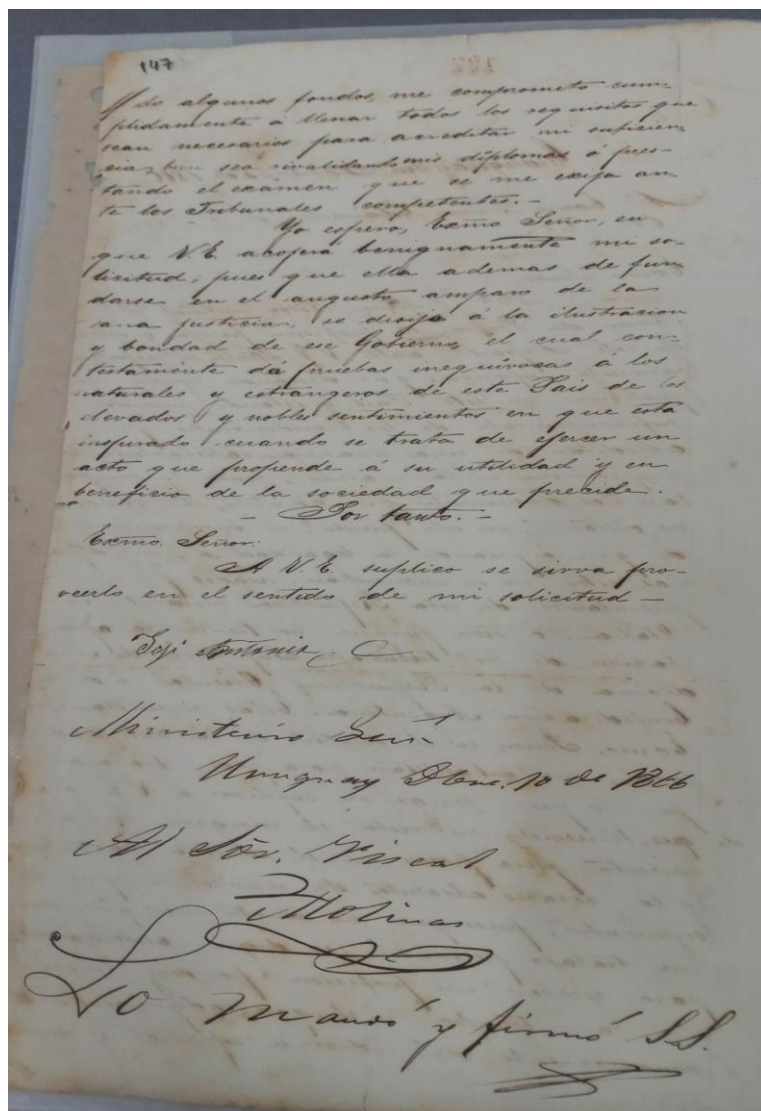 147
do algunos fondos, me comprometo cum-
plidamente á llenar todos los requisitos que
sean necesarios para acreditar mi suficien-
cia, bien sea rivalidando mis diplomas ó pres-
tando el exámen que se me exija an-
te los Tribunales competentes.-
Yo espero, Exmo Señor, en
que V.E. acojerá benignamente mi so-
licitud, pues que ella ademas de fun-
darse en el augusto amparo de la
sana justicia, se dirije á la ilustracion
y bondad de ese Gobierno, el cual con-
testamente dá pruebas inequívocas á los
naturales y estrangeros de este Pais de los
elevados y nobles sentimientos en que está
inspirado cuando se trata de ejercer un
acto que propende á su utilidad y en
beneficio de la sociedad que precide.
- Por tanto. -
Exmo. Señor:
A V.E. suplico se sirva pro-
veerlo en el sentido de mi solicitud -
Antonio
Ministerio
Uruguay 10 de 1866
Al Sôr. Fiscal
Molinas
Lo mandó y firmó S.S.